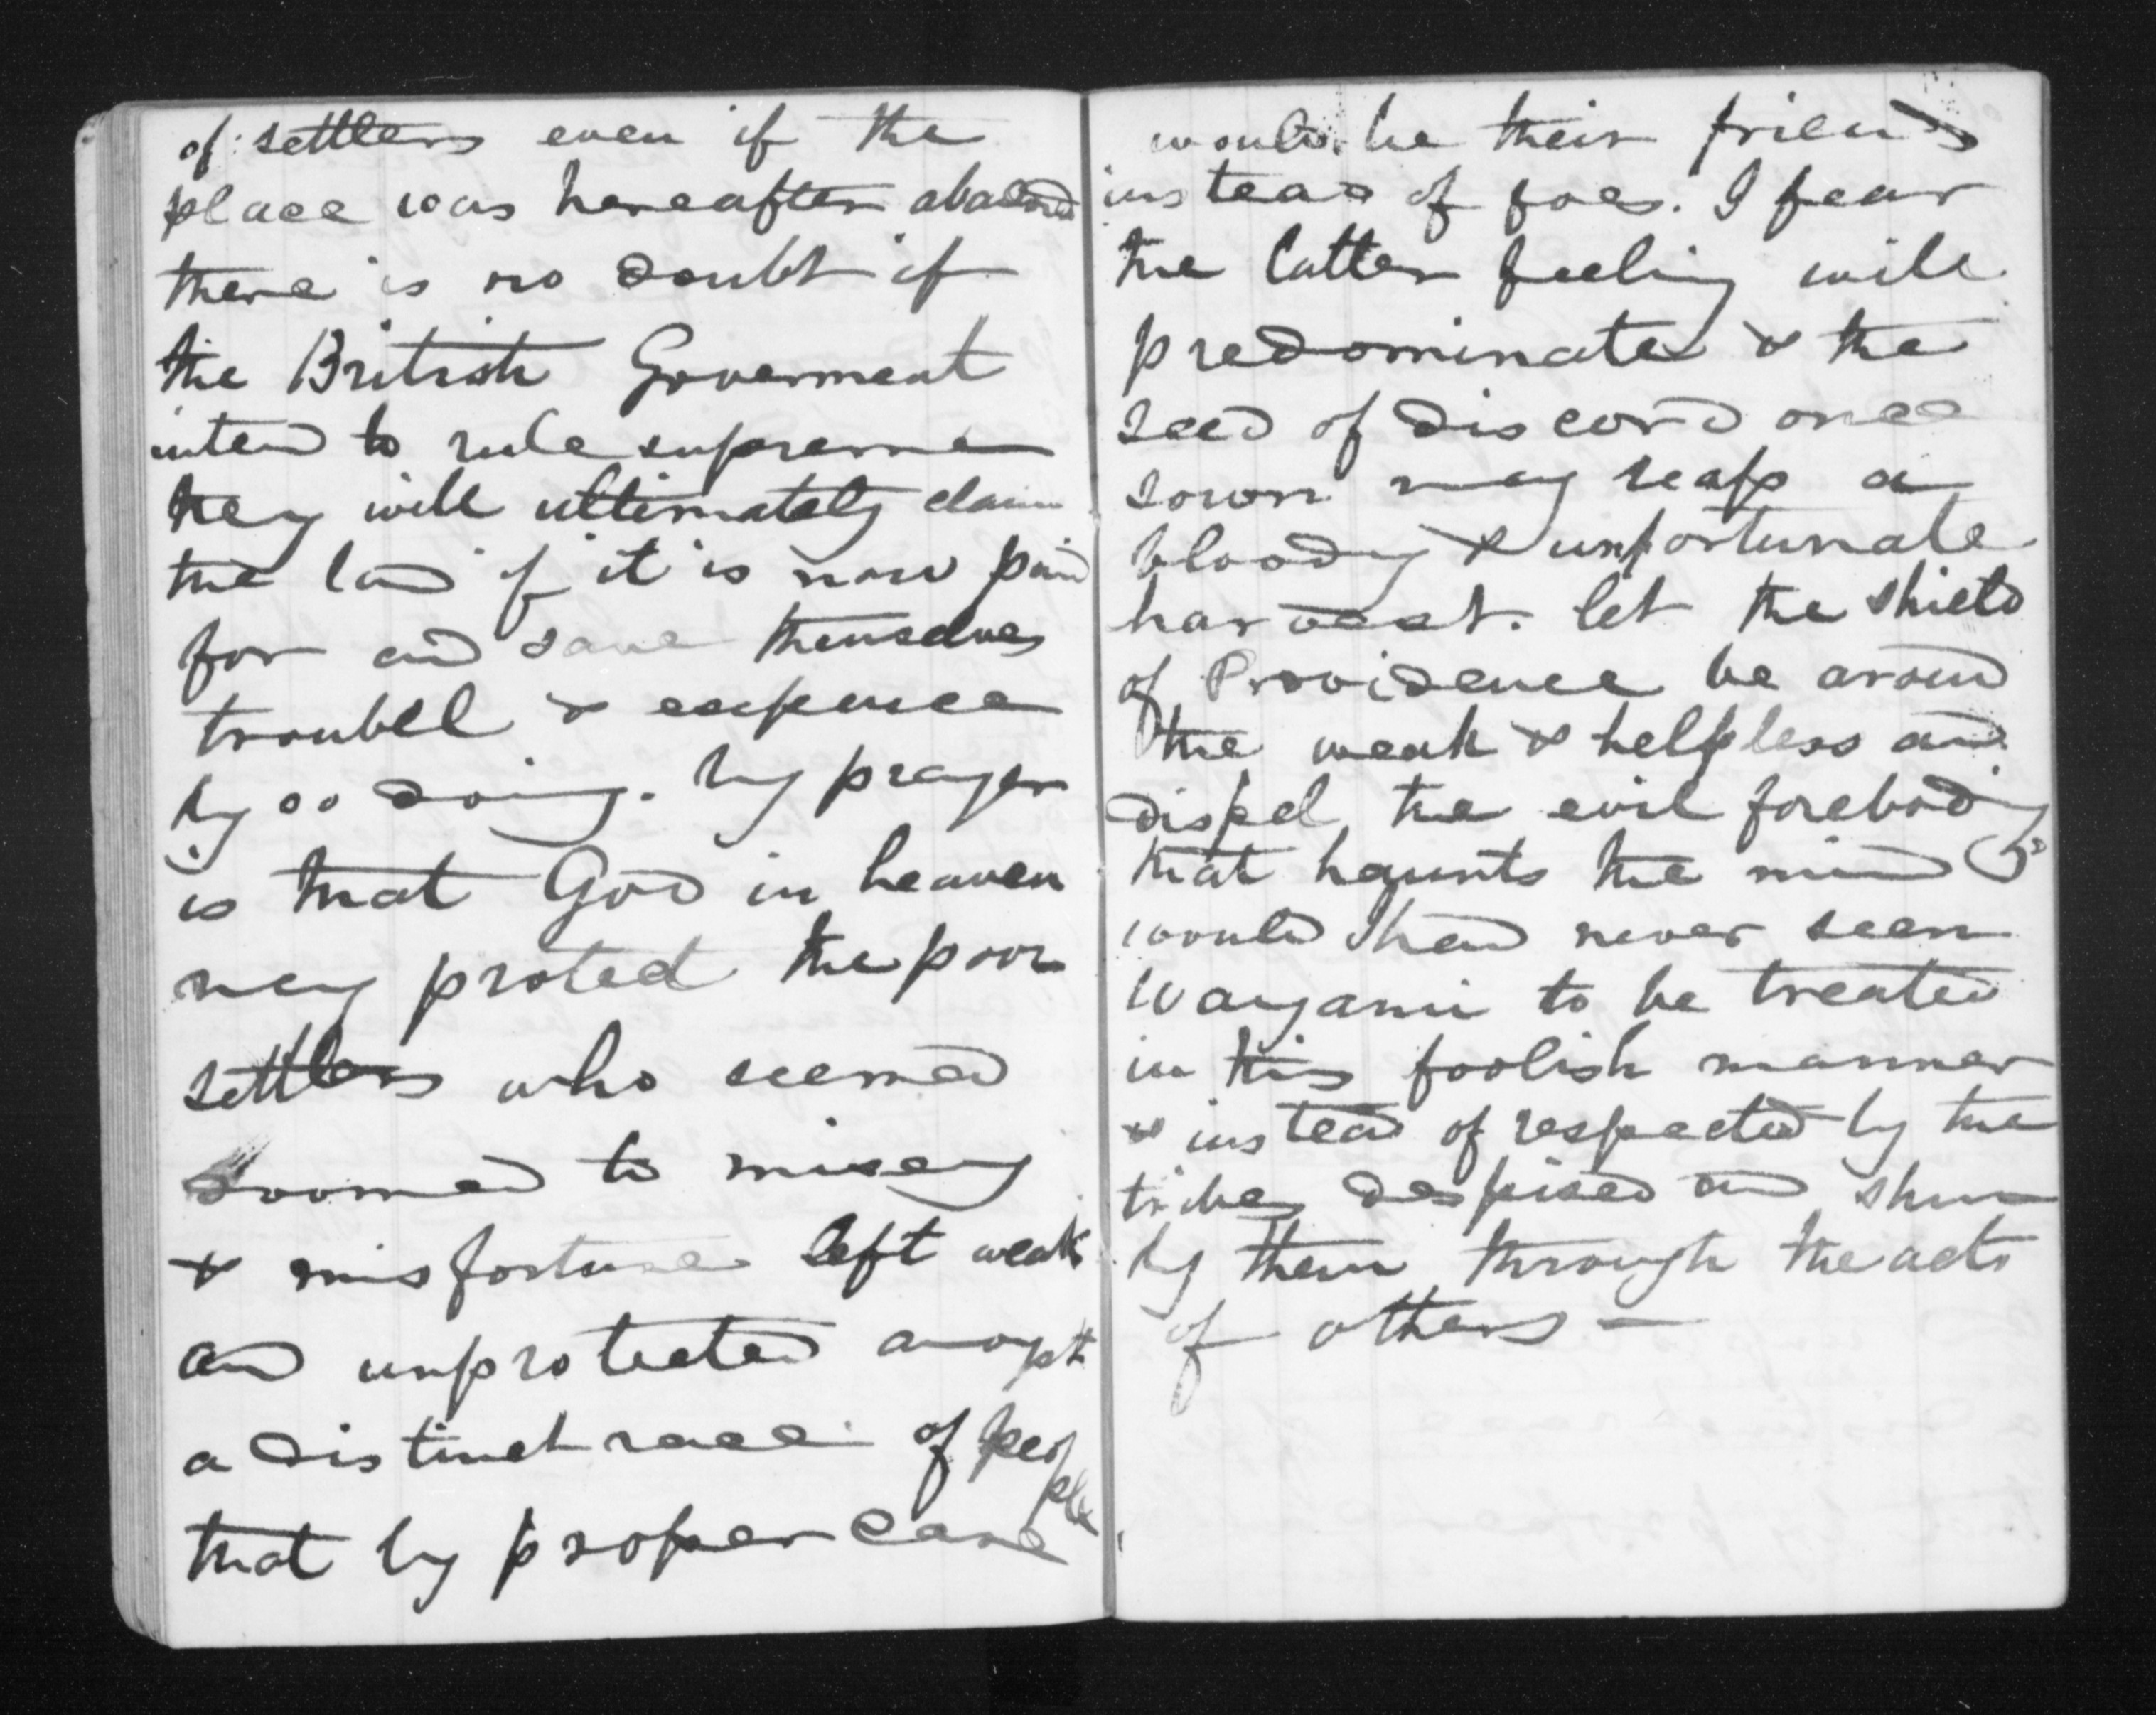 of settlers even if the
place was hereafter abandoned
there is no doubt if
the British Goverment
intend to rule supreme
they will ultimately claim
the land if it is now paid
for and save themselves
troubel & expence
by so doing. My prayer
is that God in heaven
may protect the poor
settlers who seemed
doomed to misery
& misfortune left weak
and unprotected amongst
a distinct race of people
that by proper care
would be their friends
instead of foes. I fear
the latter feeling will
predominate & the
seed of discord once
sown may reap a
bloody & unfortunate
harvest. let the shield
of Providence be around
the weak & helpless and
dispel the evil foreboding
that haunts the mind O
would I had never seen
Wangami to be treated
in this foolish manner
& instead of respected by the
tribes despised and shun
by them through the acts
of others —